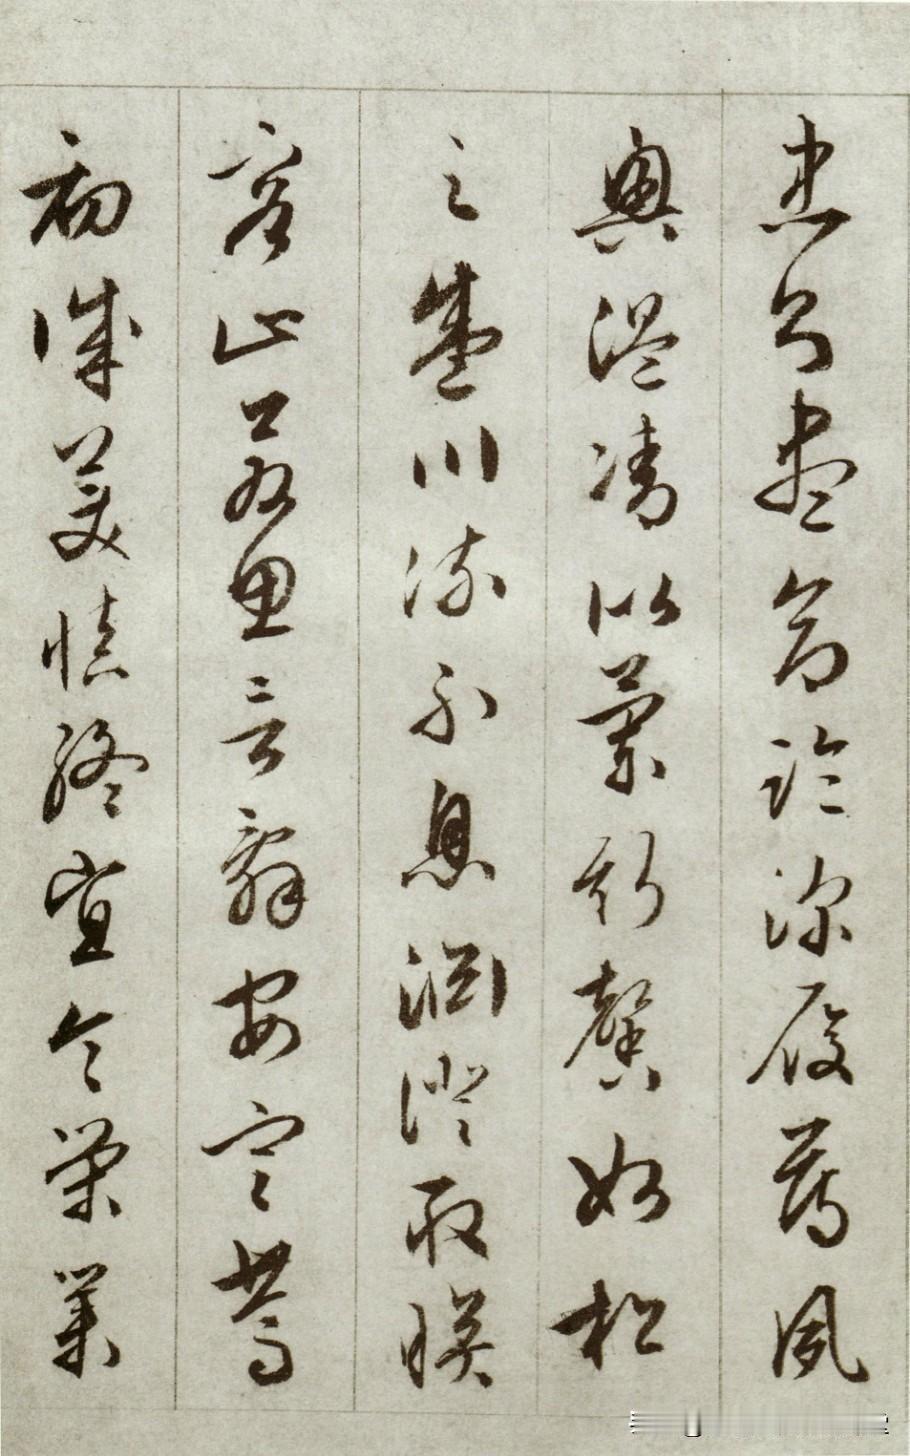 忠則盡命臨深履薄夙
興溫凊似蘭斯馨如松
之盛川流不息淵澄取映
容止若思言辭安定篤
初誠美慎終宜令榮業